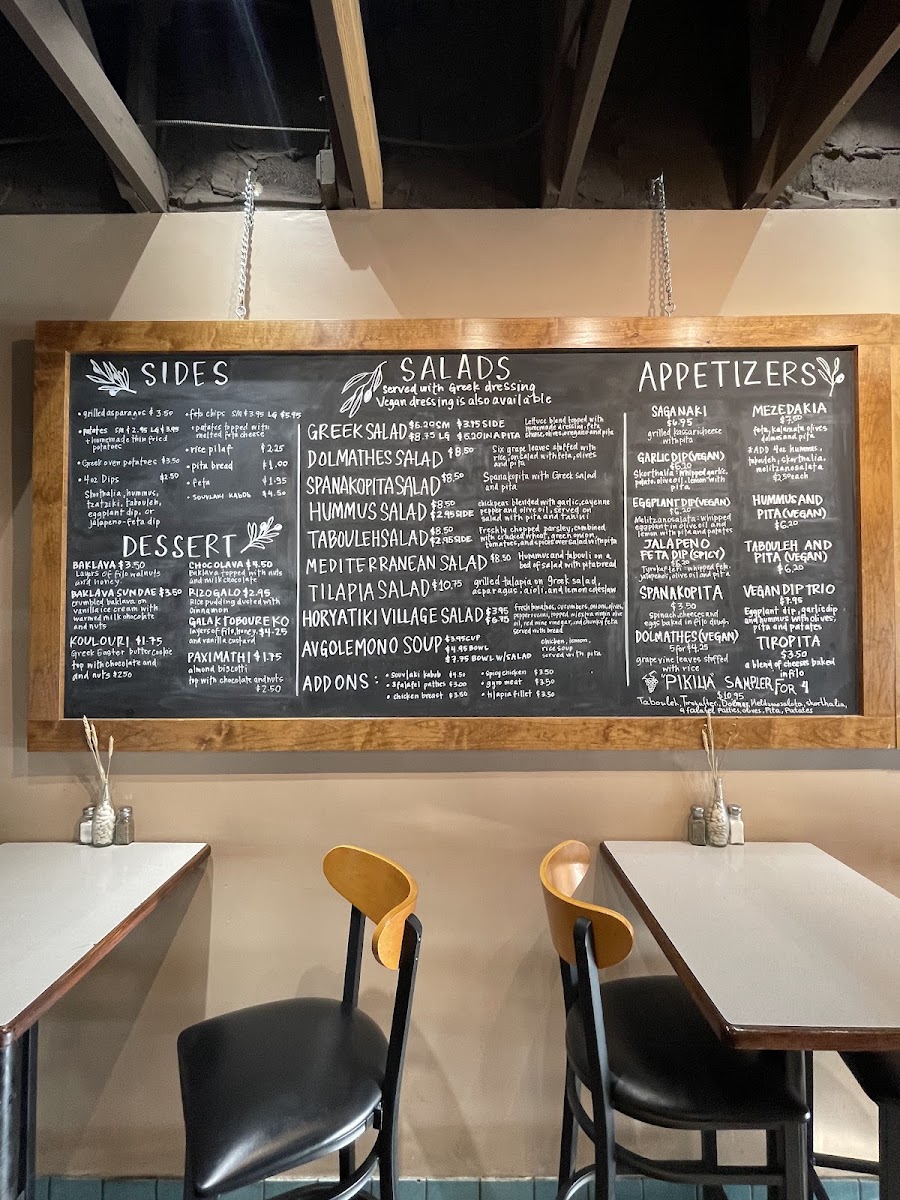 SIDES
• grilled asparagus $3.50
• patates SM $2.95 LG $3.95
+ homemade thin fried
potatoes
• Greek oven potatoes $3.50
• 4oz Dips $2.50
Skorthalia, hummus,
tzatziki, tabouleh,
eggplant dip, or
jalapeno-feta dip
• feta chips SM $3.95 LG $5.95
• patates topped with
melted feta cheese
• rice pilaf $2.25
• pita bread $1.00
• feta $1.95
• souvlaki kabob $4.50
DESSERT
BAKLAVA $3.50
Layers of filo, walnuts
and honey.
BAKLAVA SUNDAE $3.50
crumbled baklava on
vanilla ice cream with
warmed milk chocolate
and nuts
KOULOURI $1.75
Greek Easter butter cookie
top with chocolate and
and nuts $2.50
CHOCOLAVA $4.50
Baklava topped with nuts
and milk chocolate
RIZOGALO $2.95
Rice pudding dusted with
cinnamon
GALAKTOBOUREKO
layers of filo, honey, $4.25
and vanilla custard
PAXIMATHI $1.75
almond biscotti
top with chocolate and nuts
$2.50
SALADS
Served with Greek dressing
Vegan dressing is also available
GREEK SALAD $6.20 SM $3.95 SIDE
$8.75 LG $6.20 IN A PITA
Lettuce blend topped with
homemade dressing, feta
cheese, olives, oregano and pita
DOLMATHES SALAD $8.50
Six grape leaves stuffed with
rice, on salad with feta, olives
and pita
SPANAKOPITA SALAD $8.50
Spanakopita with Greek salad
and pita
HUMMUS SALAD $8.50
$2.95 SIDE
chickpeas blended with garlic, cayenne
pepper and olive oil, served on
salad with pita and tahini
TABOULEH SALAD $8.50
$2.95 SIDE
Freshly chopped parsley, combined
with cracked wheat, green onion,
tomatoes, and spices over salad with pita
MEDITERRANEAN SALAD $8.50
Hummus and tabouli on a
bed of salad with pita bread
TILAPIA SALAD $10.75
grilled talapia on greek salad,
asparagus, aioli, and lemon coleslaw
HORYATIKI VILLAGE SALAD $3.95
$6.75
fresh tomatoes, cucumbers, onions, olives,
pepperoncini, topped with extra virgin olive
oil, red wine vinegar, and chunky feta
served with bread
AVGOLEMONO SOUP $3.95 CUP
$4.95 BOWL
$7.75 BOWL W/SALAD
chicken, lemon,
rice soup
served with pita
ADD ONS:
• souvlaki kabob $4.50
• 3 falafel patties $3.00
• chicken breast $3.50
• spicy chicken $3.50
• gyro meat $3.50
• tilapia fillet $3.50
APPETIZERS
SAGANAKI
$6.95
grilled kasari cheese
with pita
GARLIC DIP (VEGAN)
$6.20
Skorthalia: whipped garlic,
potato, olive oil, lemon with
pita
EGGPLANT DIP (VEGAN)
$6.20
Melitzanosalata: whipped
eggplant in olive oil and
lemon with pita and patates
JALAPENO
FETA DIP (SPICY)
$6.20
Tirokafteri: whipped feta,
jalapenos, olive oil and pita
SPANAKOPITA
$3.50
spinach, cheeses and
eggs baked in filo dough
DOLMATHES (VEGAN)
5 for $4.25
grapevine leaves stuffed
with rice
MEZEDAKIA
$7.50
feta, kalamata olives
dolmas and pita
*ADD 4oz hummus,
tabouleh, skorthalia,
melitzanosalata
$2.50 each
HUMMUS AND
PITA (VEGAN)
$6.20
TABOULEH AND
PITA (VEGAN)
$6.20
VEGAN DIP TRIO
$7.95
Eggplant dip, garlic dip
and hummus with olives,
pita and patates
TIROPITA
$3.50
a blend of cheeses baked
in filo
"PIKILIA" SAMPLER FOR 4
$10.95
Tabouleh, Tirokafteri, Dolmas, Melitzanosalata, skorthalia,
4 falafel patties, olives, Pita, Patates